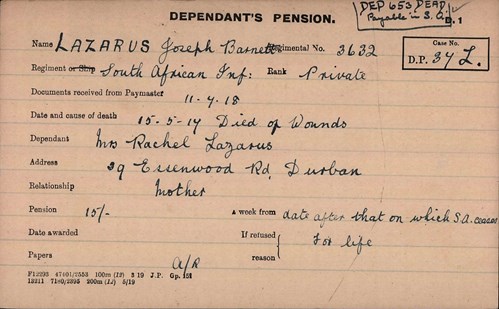 DEPENDANT'S PENSION.
DEP 653 DEAD
Payable in S. A.
B. 1
Name LAZARUS Joseph Barnett Regimental No. 3632
Case No.
D.P. 34 L.
Regiment or Ship South African Inf: Rank Private
Documents received from Paymaster 11-4-18
Date and cause of death 15-5-17 Died of Wounds
Dependant Mrs Rachel Lazarus
Address 29 Essenwood Rd, Durban
Relationship Mother
Pension 15/- a week from date after that on which S.A. ceases
Date awarded If refused for life
reason
Papers A/R
F12293 47401/7553 100m (12) 3 19 J.P. Gp. 151
12211 7180/2395 200m (12) 5/19